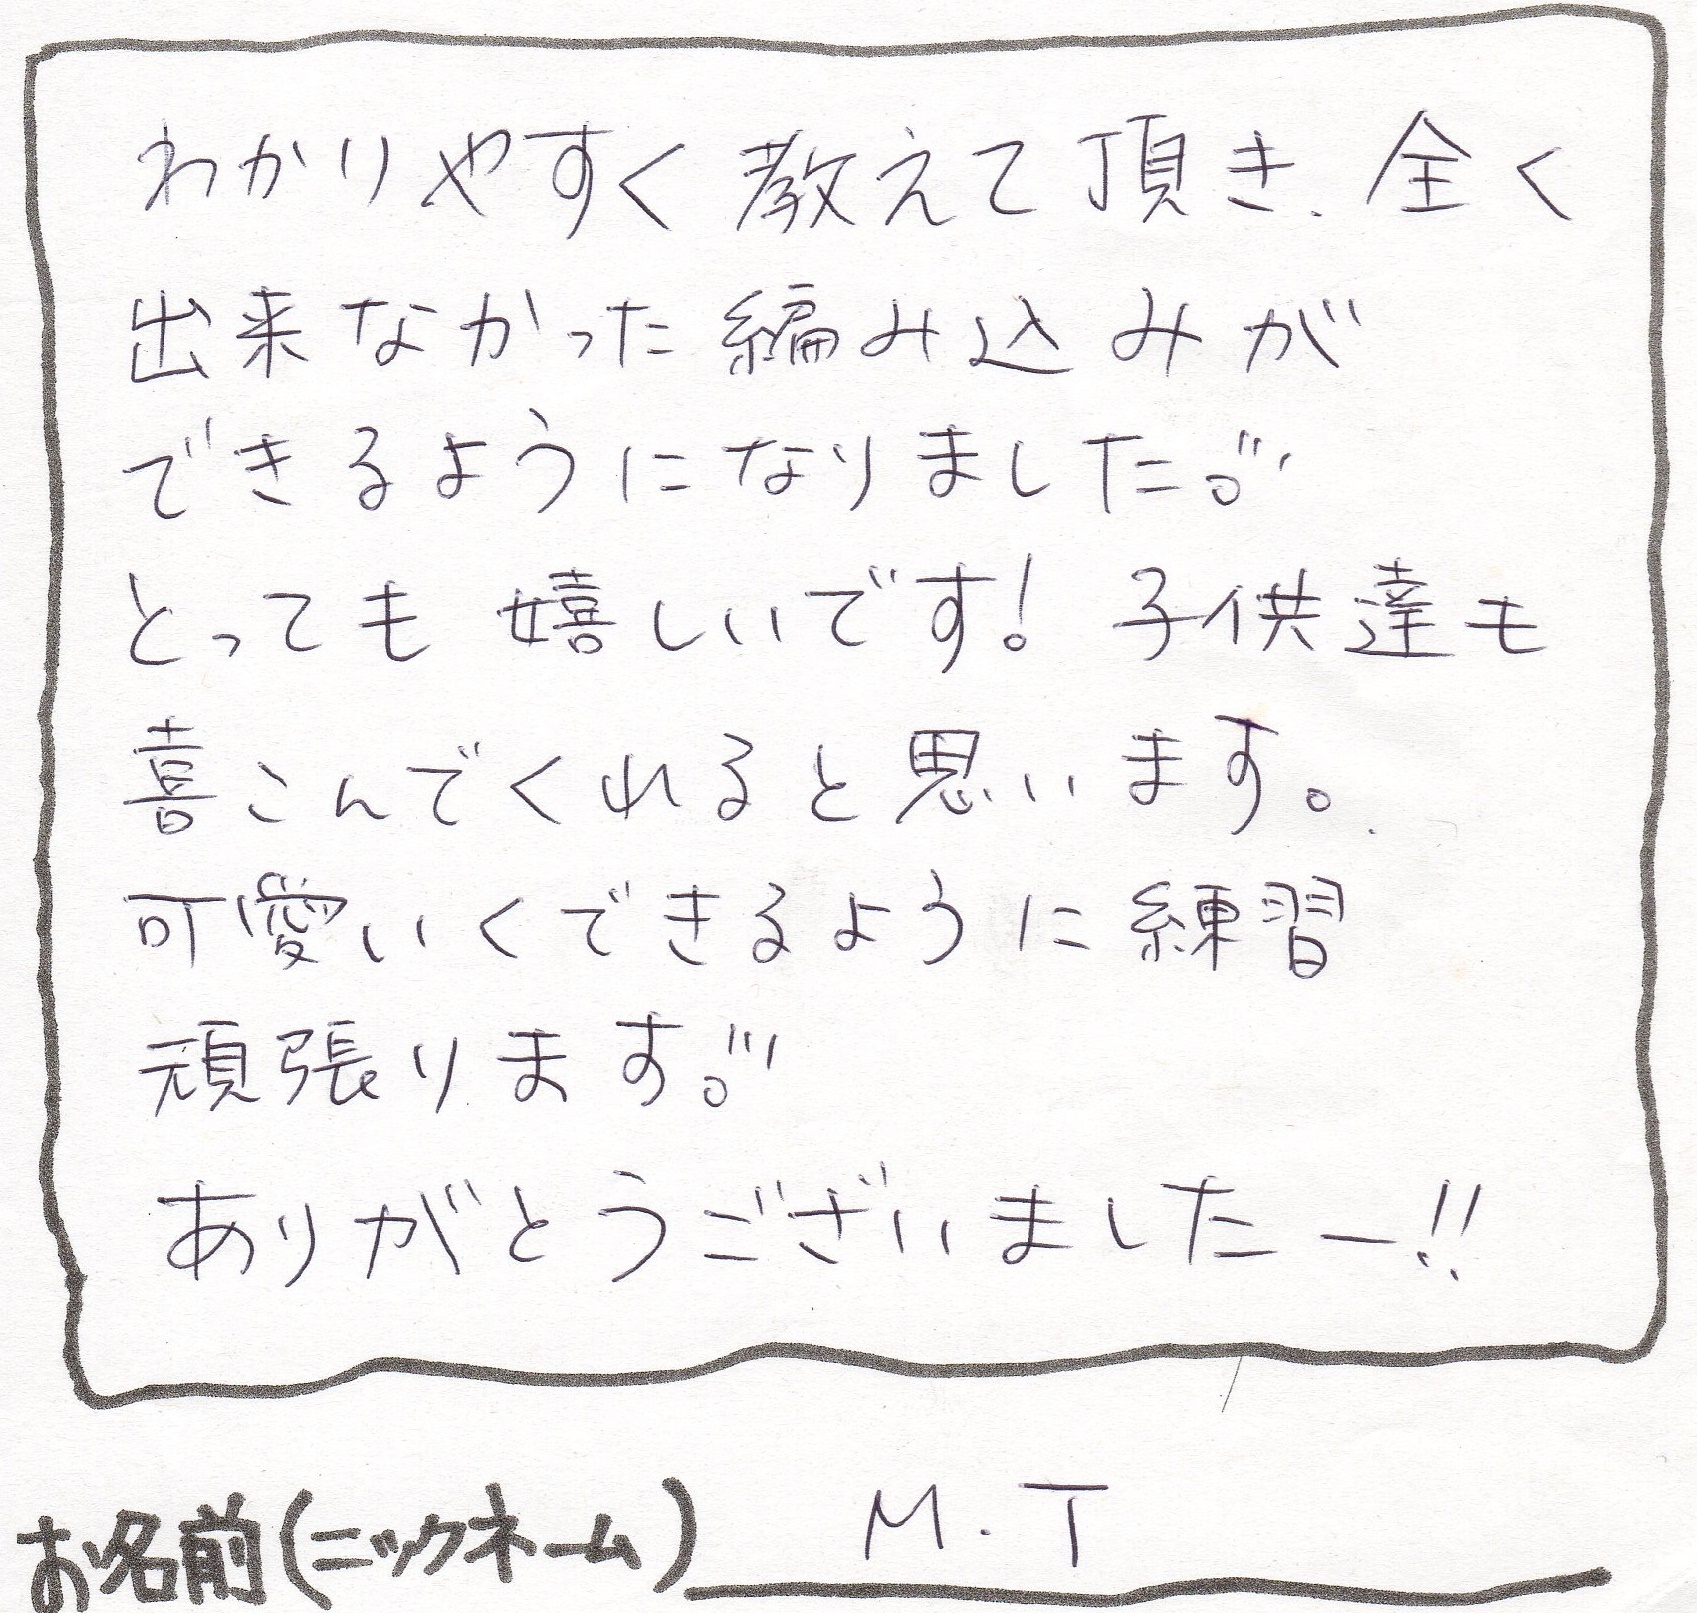 わかりやすく教えて頂き、全く
出来なかった編み込みが
できるようになりました。
とっても嬉しいです! 子供達も
喜こんでくれると思います。
可愛いくできるように練習
頑張ります。
ありがとうございましたー!!
お名前(ニックネーム) M.T